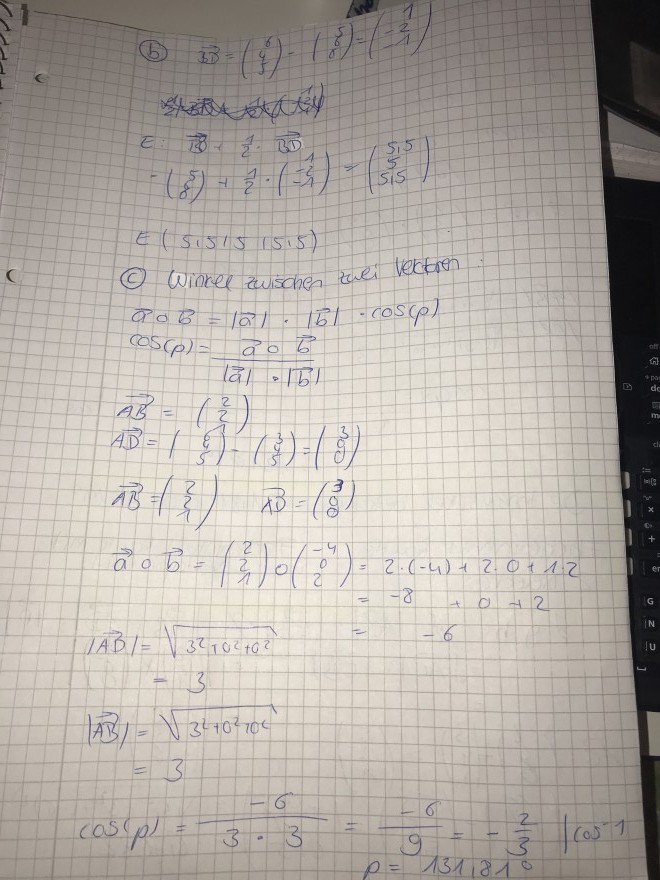 b) BD = (6 4 5) - (5 6 6) = (1 -2 -1)
E: B + 1/2 · BD
= (5 6 6) + 1/2 · (1 -2 -1) = (5,5 5 5,5)
E ( 5,5 | 5 | 5,5)
c) Winkel zwischen zwei Vektoren
a o b = |a| · |b| · cos(φ)
cos(φ) = a o b
|a| · |b|
AB = (2 2 1)
AD = (6 4 5) - (3 4 5) = (3 0 0)
AB = (2 2 1) AD = (3 0 0)
a o b = (2 2 1) o (-4 0 2) = 2·(-4) + 2·0 + 1·2
= -8 + 0 + 2
|AD| = √3²+0²+0² = -6
= 3
|AB| = √3²+0²+0²
= 3
cos(φ) = -6 / 3 · 3 = -6 / 9 = - 2/3 | cos-1
φ = 131,81°
G
N
U